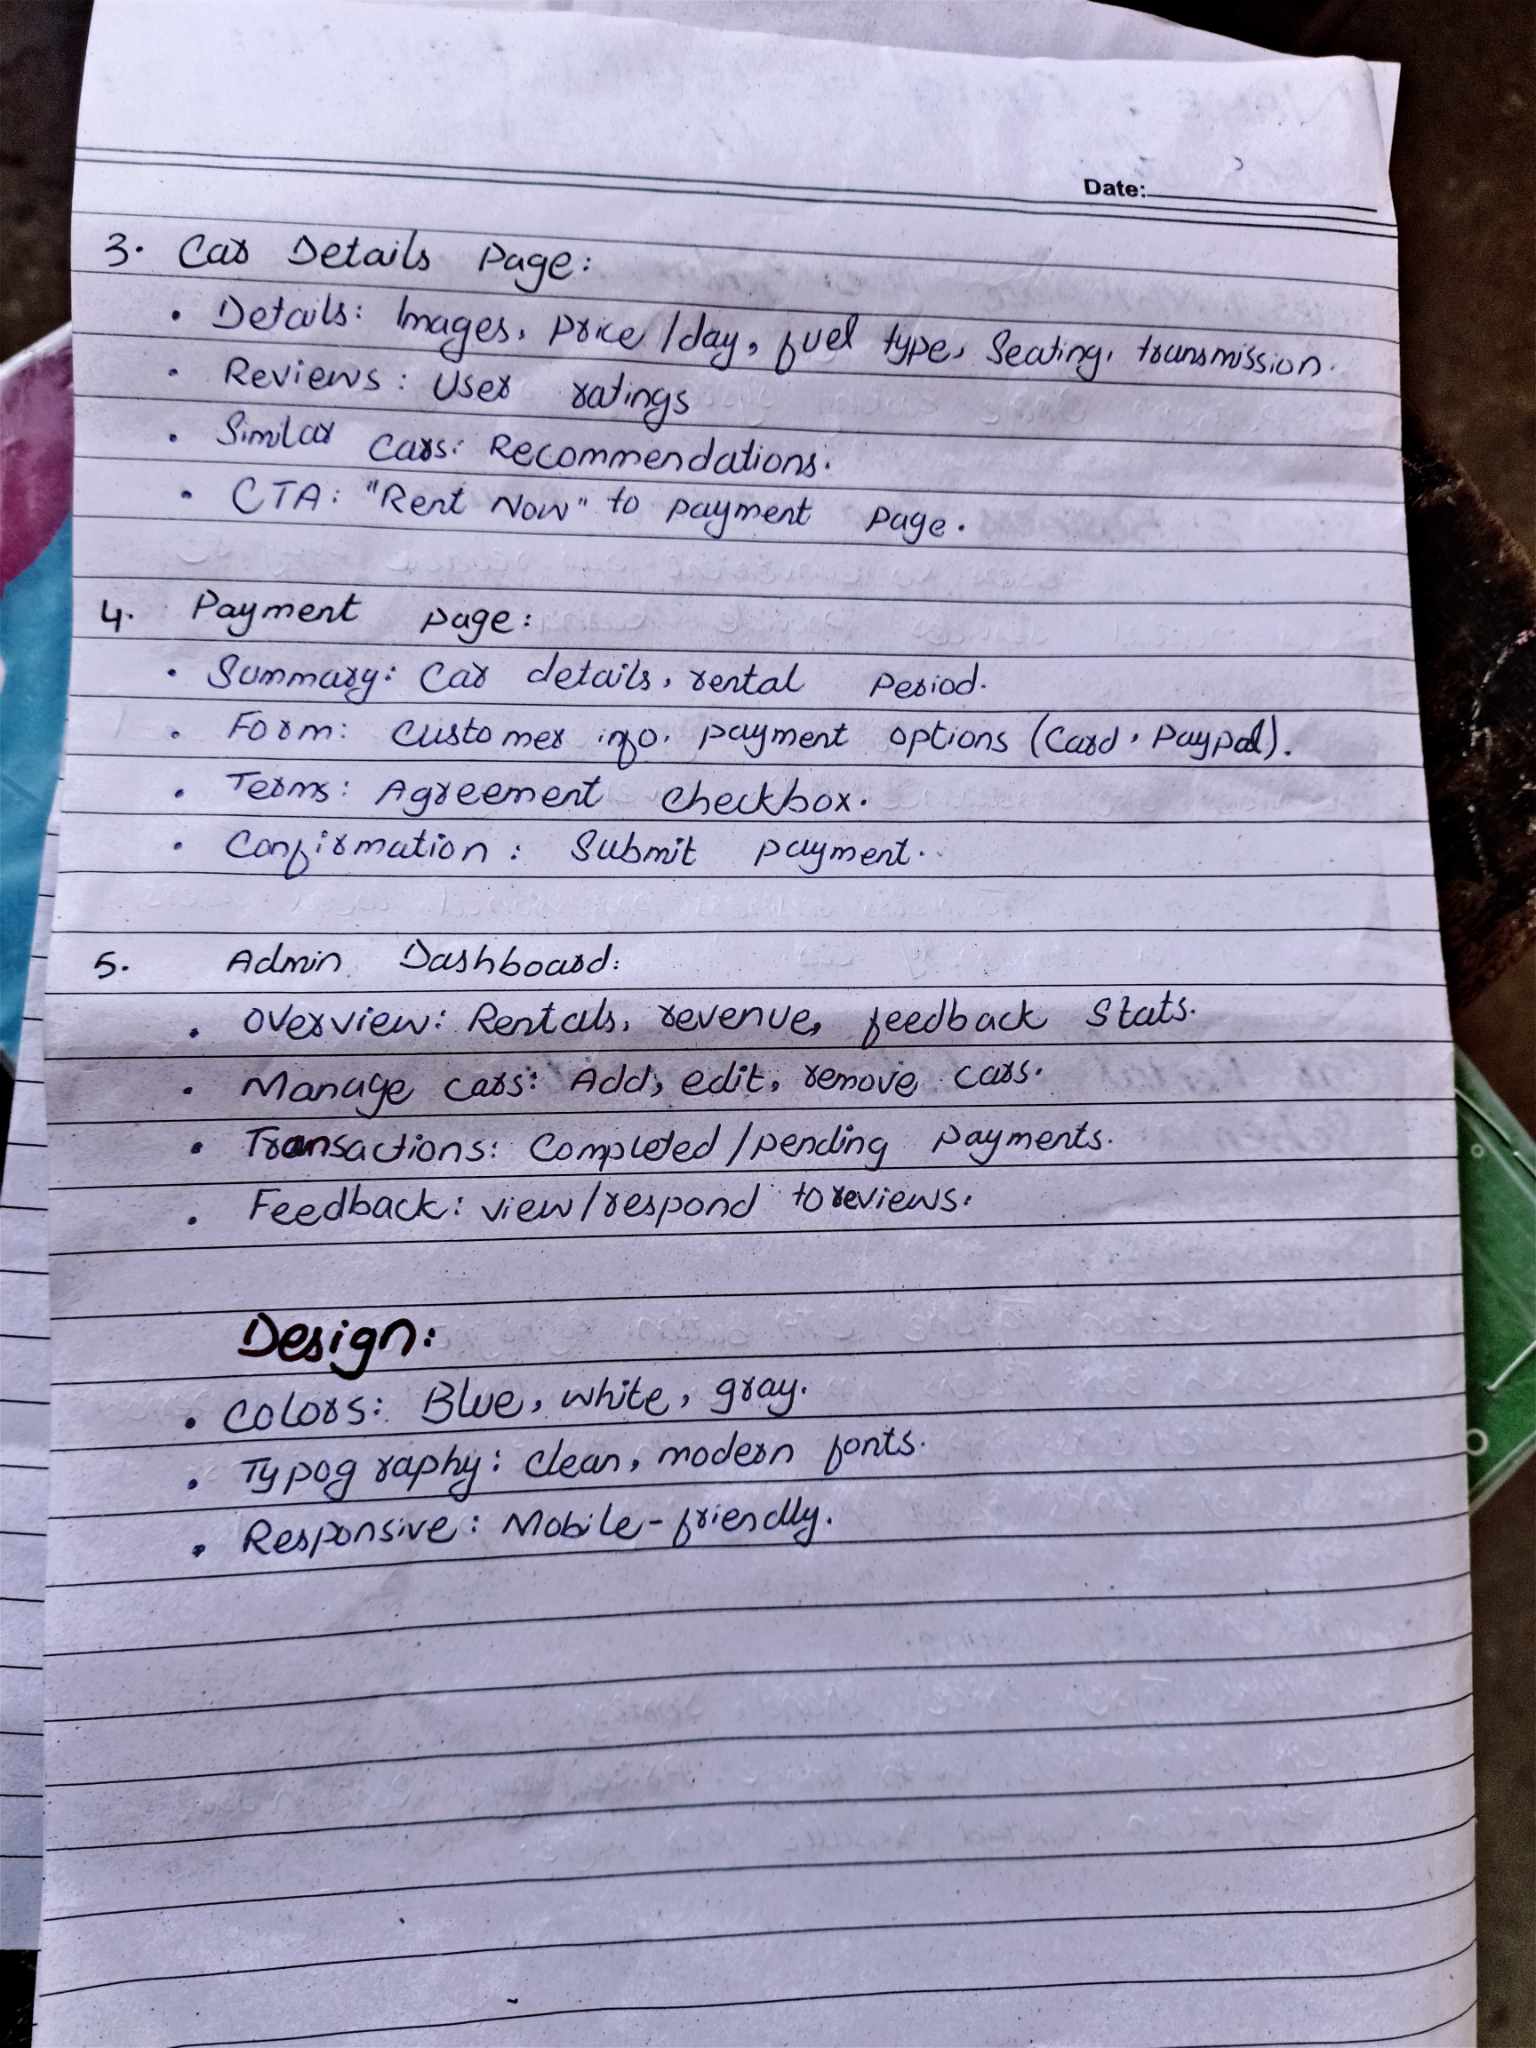 Date:
3. Car Details Page:
• Details: Images, price/day, fuel type, Seating, transmission.
• Reviews: User ratings
• Similar Cars: Recommendations.
• CTA: "Rent Now" to payment page.
4. Payment page:
• Summary: Car details, rental period.
• Form: Customer info, payment options (Card, Paypal).
• Terms: Agreement checkbox.
• Confirmation: Submit payment.
5. Admin Dashboard:
• Overview: Rentals, revenue, feedback Stats.
• Manage cars: Add, edit, remove cars.
• Transactions: Completed/pending payments.
• Feedback: view/respond to reviews.
Design:
• Colors: Blue, white, gray.
• Typography: clean, modern fonts.
• Responsive: Mobile-friendly.